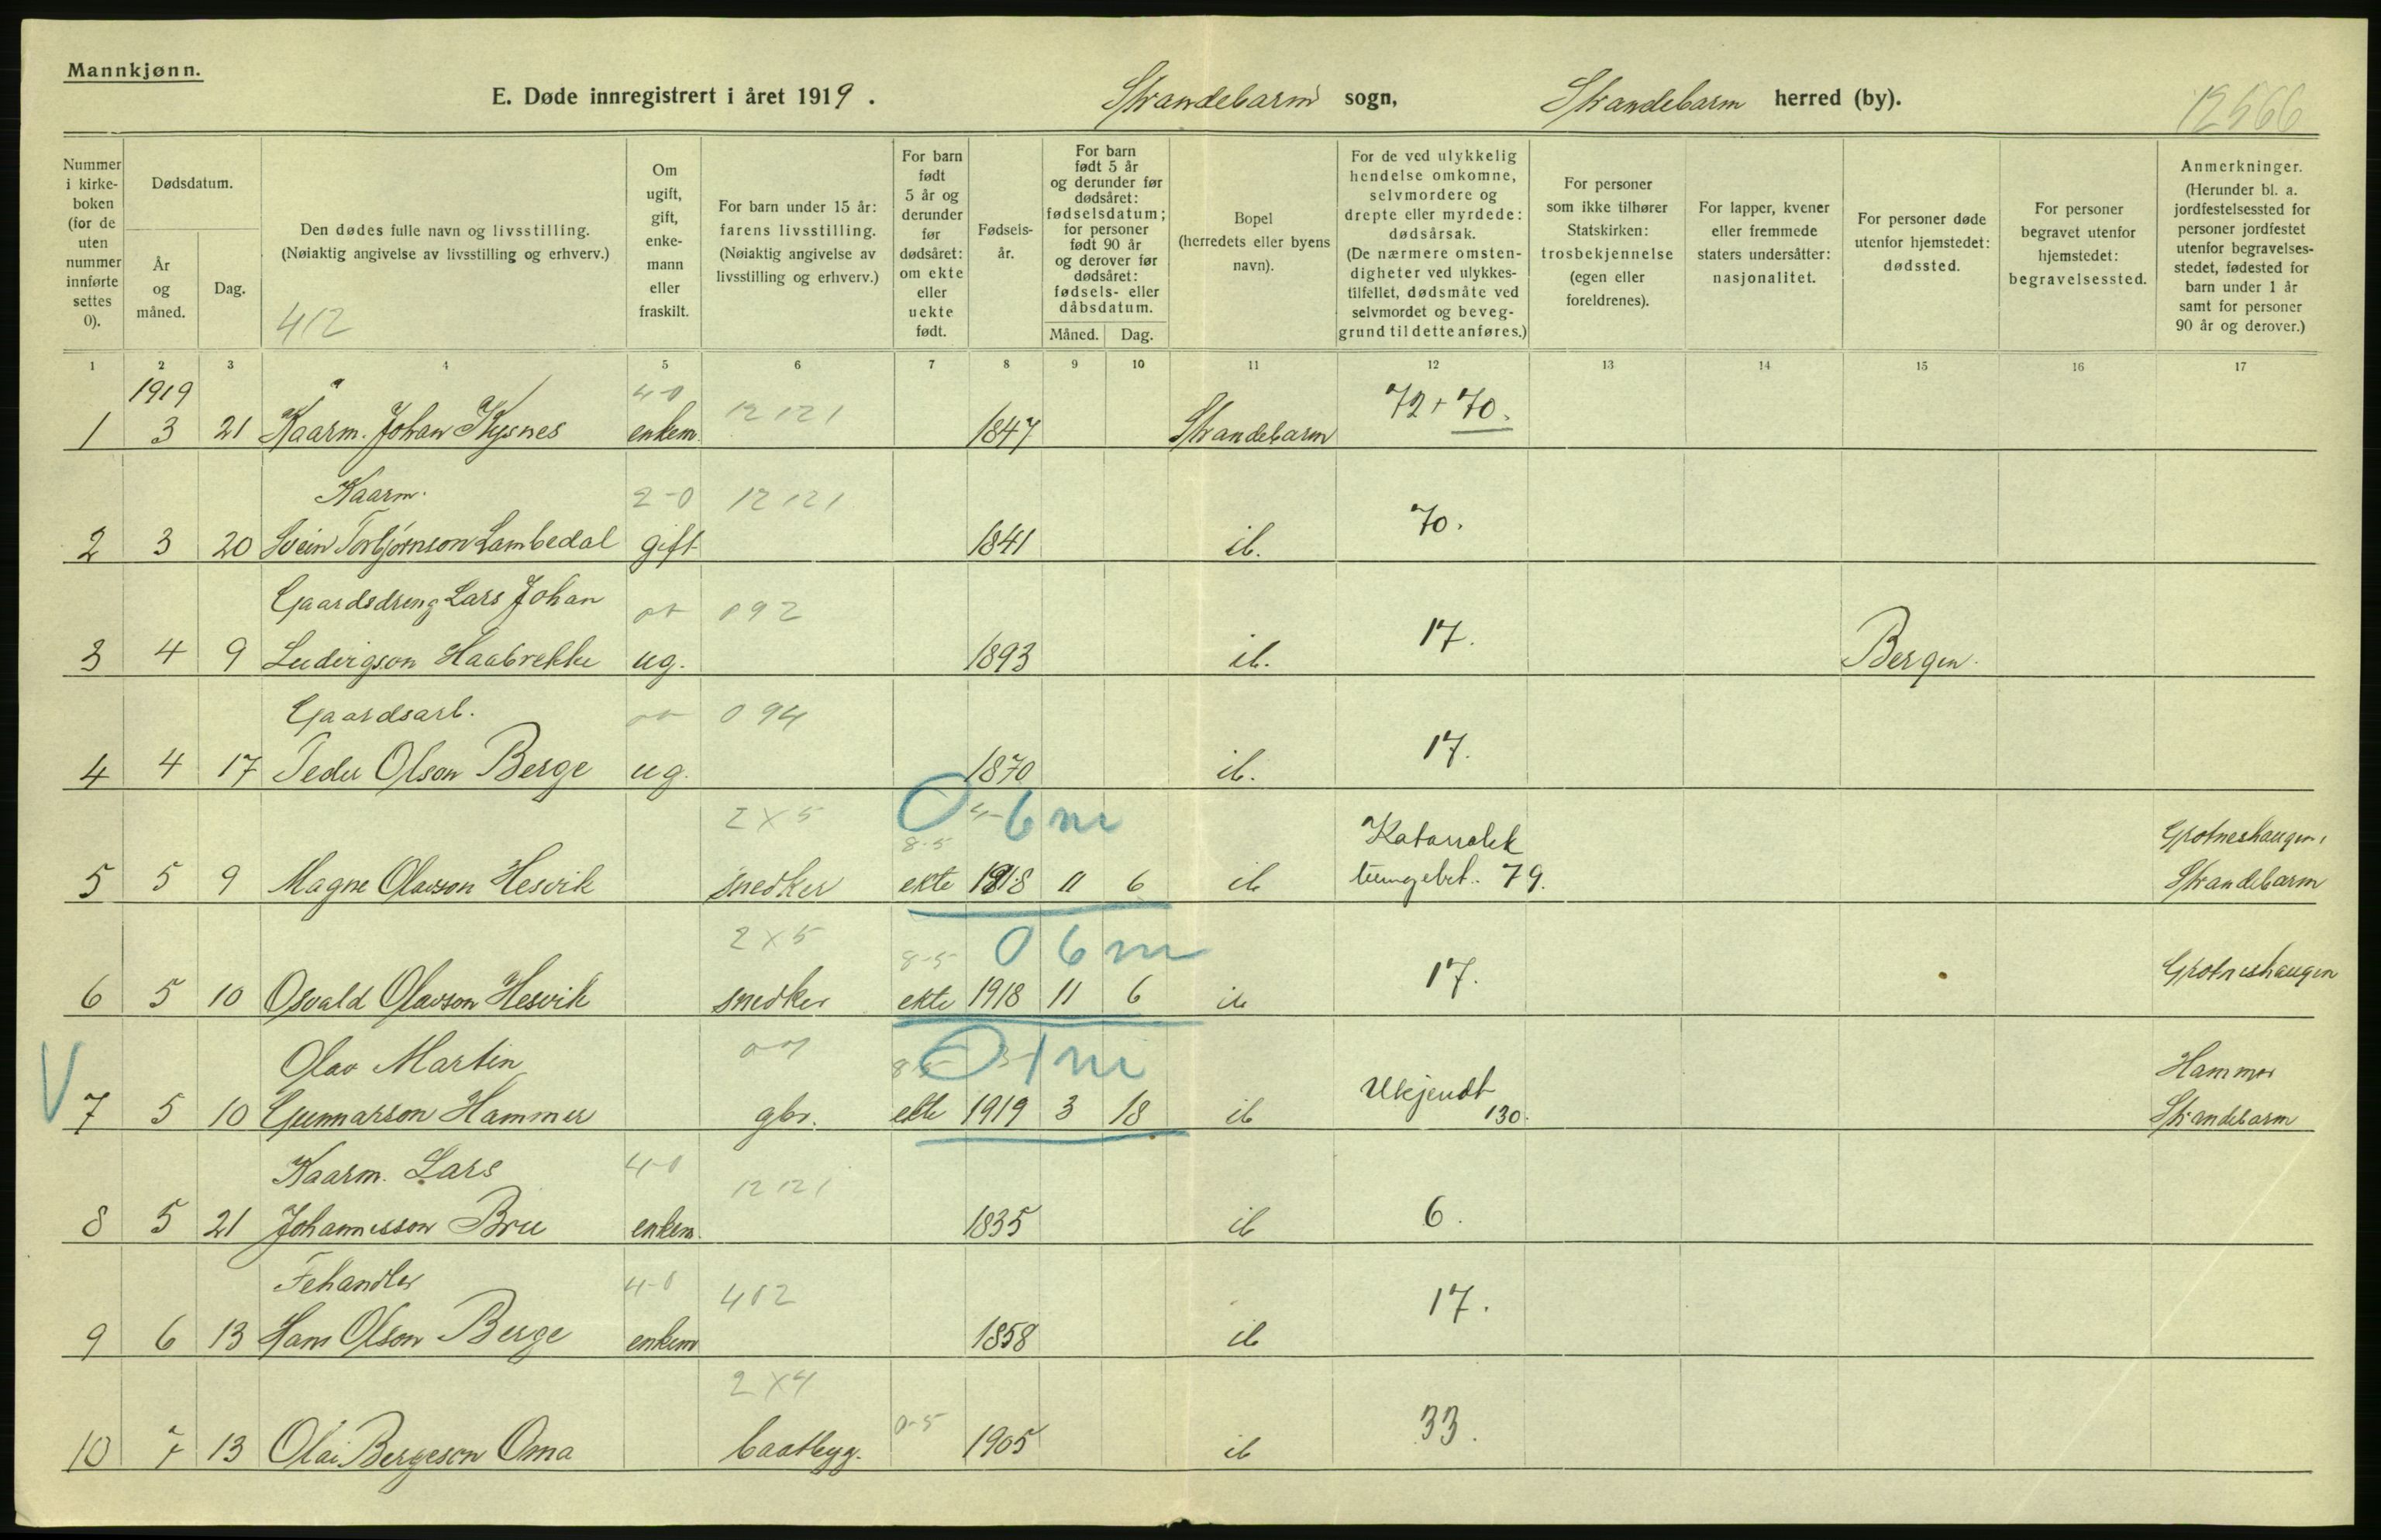 Mannkjønn.
E. Døde innregistrert i året 1919. Strandebarm sogn, Strandebarm herred (by).
12566
Nummer i kirke-boken (for de uten nummer innførte settes 0).
Dødsdatum.
År og måned.
Dag.
Den dødes fulle navn og livsstilling.
(Nøiaktig angivelse av livsstilling og erhverv.)
412
Om ugift, gift, enke-mann eller fraskilt.
For barn under 15 år: farens livsstilling. (Nøiaktig angivelse av livsstilling og erhverv.)
For barn født 5 år og derunder før dødsåret: om ekte eller uekte født.
Fødsels-år.
For barn født 5 år og derunder før dødsåret: fødselsdatum; for personer født 90 år og derover før dødsåret: fødsels- eller dåbsdatum.
Måned. Dag.
Bopel (herredets eller byens navn).
For de ved ulykkelig hendelse omkomne, selvmordere og drepte eller myrdede: dødsårsak. (De nærmere omsten-digheter ved ulykkes-tilfellet, dødsmåte ved selvmordet og beveg-grund til dette anføres.)
For personer som ikke tilhører Statskirken: trosbekjennelse (egen eller foreldrenes).
For lapper, kvener eller fremmede staters undersåtter: nasjonalitet.
For personer døde utenfor hjemstedet: dødssted.
For personer begravet utenfor hjemstedet: begravelsessted.
Anmerkninger. (Herunder bl. a. jordfestelsessted for personer jordfestet utenfor begravelses-stedet, fødested for barn under 1 år samt for personer 90 år og derover.)
1 2 3 4 5 6 7 8 9 10 11 12 13 14 15 16 17
1919 4-0 12121 72+70.
1 3 21 Kaarm. Johan Kysnes enkem. 1847 Strandebarm
Kaarm. 2-0 12121 70.
2 3 20 Svein Torbjørnson Lambedal gift 1841 ib.
Gaardsdreng Lars Johan 092 17.
3 4 9 Ludvigson Haabrekke ug. 1893 ib. Bergen.
Gaardsarb. 094 17.
4 4 17 Peder Olson Berge ug. 1870 ib.
2 x 5 0 6 m 8-5 Katarralsk Grotneshaugen,
5 5 9 Magne Olavson Hesvik snedker ekte 1918 11 6 ib lungebet. 79. Strandebarm
2 x 5 8-5 0 6 m 17. Grotneshaugen
6 5 10 Osvald Olavson Hesvik snedker ekte 1918 11 6 ib
V Olav Martin 0 1 m Ukjendt Hammer
7 5 10 Gunnarson Hammer gbr. ekte 1919 3 18 ib 130. Strandebarm
Kaarm. Lars 4-0 12121 6.
8 5 21 Johannesson Bru enkem. 1835 ib
Fehandler 4-0 402 17.
9 6 13 Hans Olson Berge enkem 1858 ib
2 x 4 0-5 33.
10 7 13 Olai Bergeson Oma baatbygg. 1905 ib